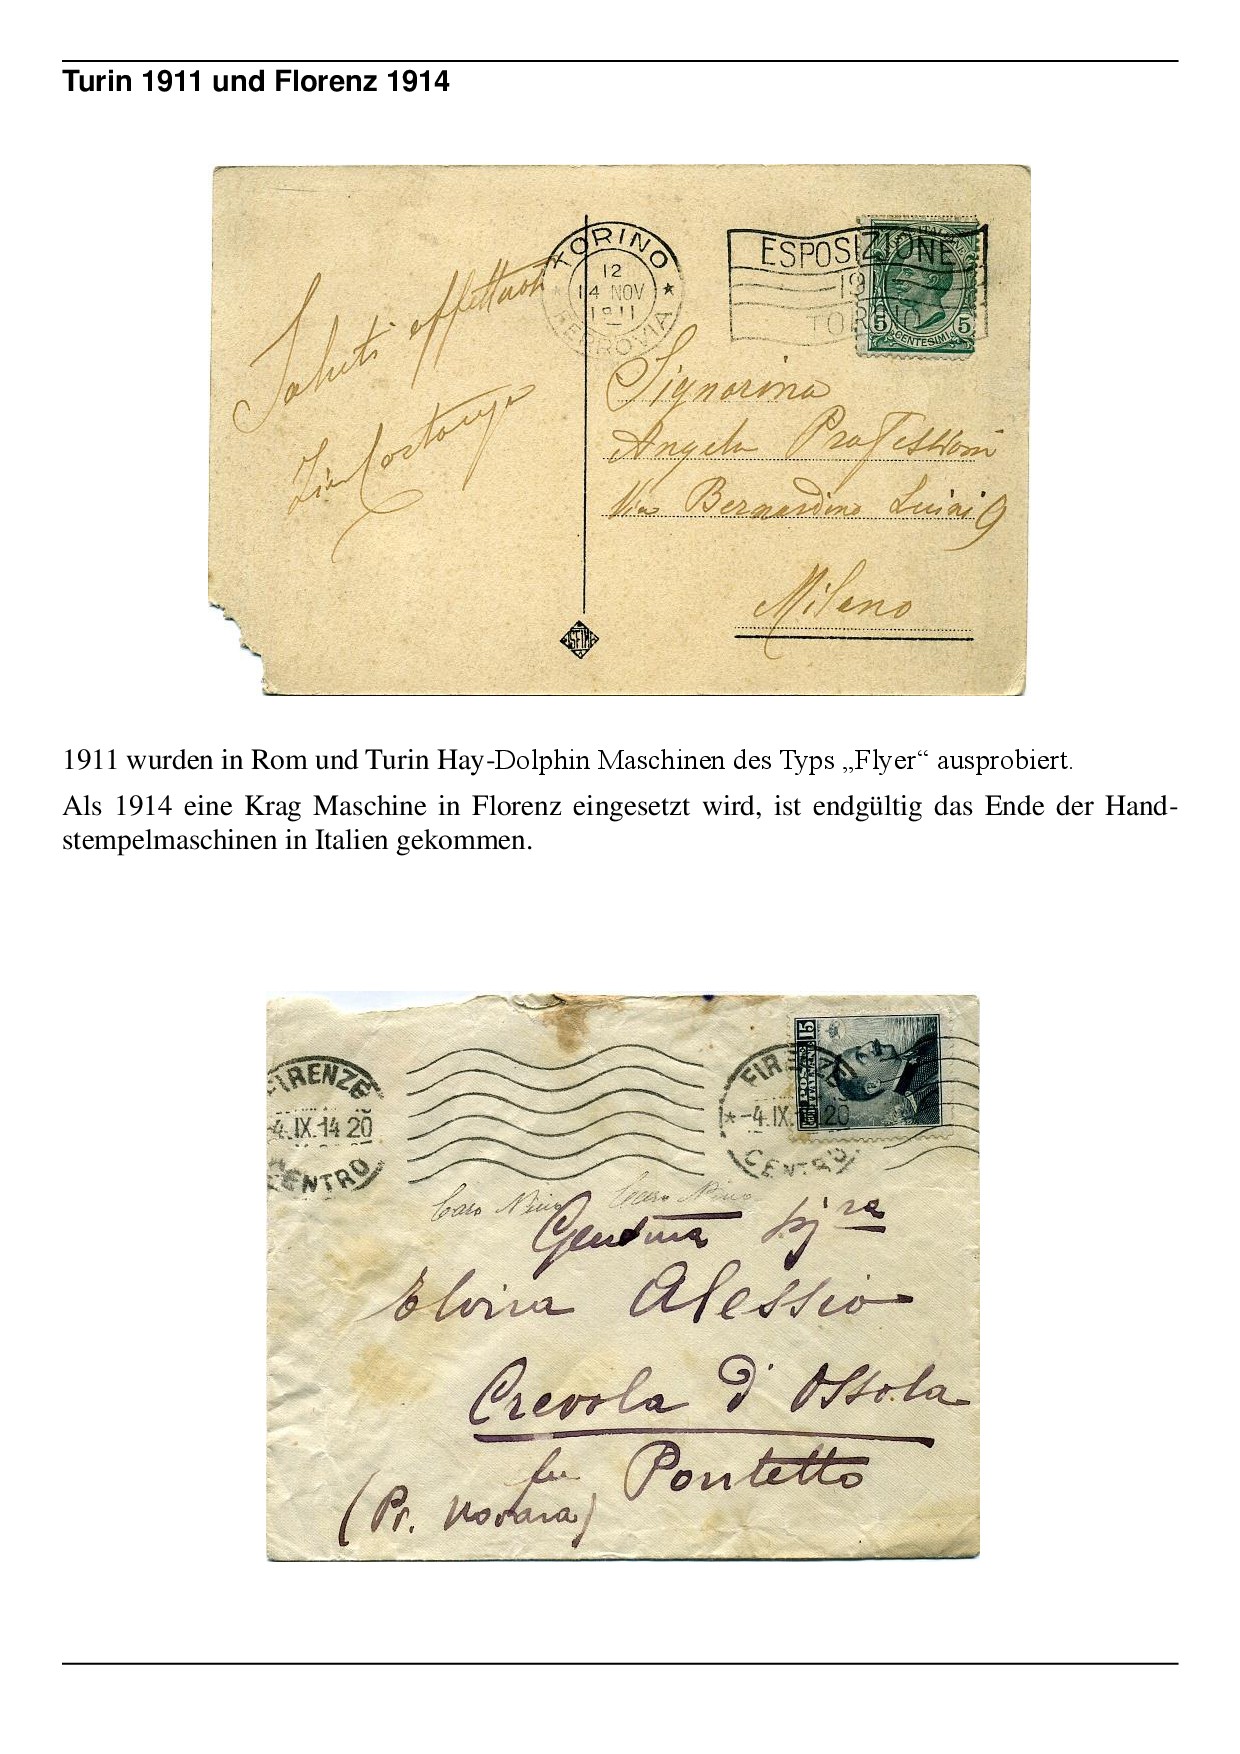 Turin 1911 und Florenz 1914
TORINO
12
14 NOV
1911
FERROVIA
ESPOSIZIONE
1911
TORINO
5 5
CENTESIMI
Saluti affettuosi
Zia Costanza
Signorina
Angela
Via Bernardino Luini 9
Milano
1911 wurden in Rom und Turin Hay-Dolphin Maschinen des Typs „Flyer“ ausprobiert.
Als 1914 eine Krag Maschine in Florenz eingesetzt wird, ist endgültig das Ende der Hand-
stempelmaschinen in Italien gekommen.
FIRENZE
-4.IX.14 20
CENTRO
15
POSTE
ITALIANE
FIRENZE
-4.IX. 20
CENTRO
Caro Nino Caro Nino
Gentma Sigra
Elvira Alessio
Crevola d'Ossola
per Pontetto
(Pr. Novara)